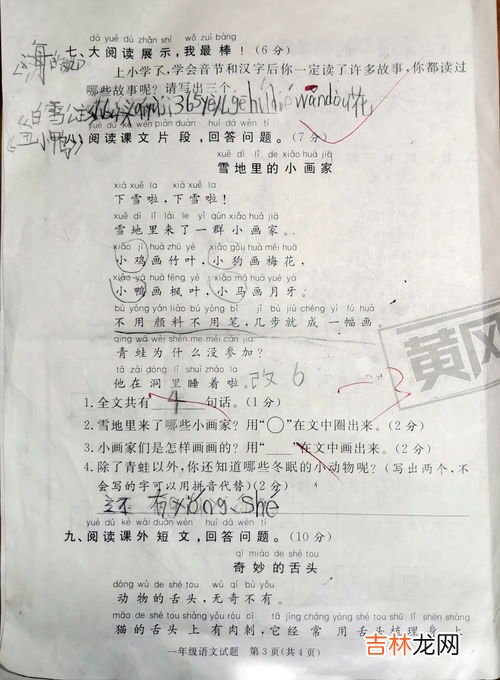 dà yuè dú zhǎn shì wǒ zuì bàng
七、大阅读展示,我最棒!(6分)
上小学了,学会音节和汉字后你一定读了许多故事,你都读过
哪些故事呢?请写出三个。
《白雪公主》
yuè dú kè wén piàn duàn huí dá wèn tí
阅读课文片段,回答问题。(7分)
xuě dì lǐ de xiǎo huà jiā
雪地里的小画家
xià xuě la xià xuě la
下雪啦,下雪啦!
xuě dì lǐ lái le yì qún xiǎo huà jiā
雪地里来了一群小画家。
xiǎo jī huà zhú yè xiǎo gǒu huà méi huā
小鸡画竹叶,小狗画梅花,
xiǎo yā huà fēng yè xiǎo mǎ huà yuè yá
小鸭画枫叶,小马画月牙。
bú yòng yán liào bú yòng bǐ jǐ bù jiù chéng yì fú huà
不用颜料不用笔,几步就成一幅画
qīng wā wèi shén me méi cān jiā
青蛙为什么没参加?
tā zài dòng lǐ shuì zháo la
他在洞里睡着啦。改6
-3
1.全文共有 4 句话。(1分)
2.雪地里来了哪些小画家?用“○”在文中圈出来。(2分)
3.小画家们是怎样画画的?用“__”在文中画出来。(2分)
4.除了青蛙以外,你还知道哪些冬眠的小动物呢?(写出两个,不
会写的字可以用拼音代替)(2分)
还有xióng、shé
yuè dú kè wài duǎn wén huí dá wèn tí
九、阅读课外短文,回答问题。(10分)
qí miào de shé tou
奇妙的舌头
dòng wù de shé tou wú qí bù yǒu
动物的舌头,无奇不有。
māo de shé tou shàng yǒu ròu cì tā jīng cháng yòng shé tou shū lǐ shēn shàng
猫的舌头上有肉刺,它经常用舌头梳理身上
一年级语文试题 第3页(共4页)
黄冈
吉林龙网